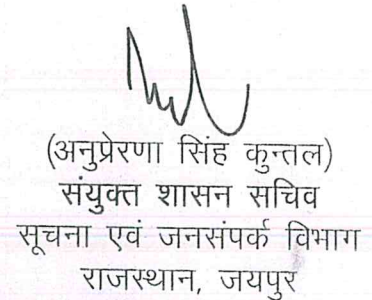 (अनुप्रेरणा सिंह कुन्तल)
संयुक्त शासन सचिव
सूचना एवं जनसंपर्क विभाग
राजस्थान, जयपुर